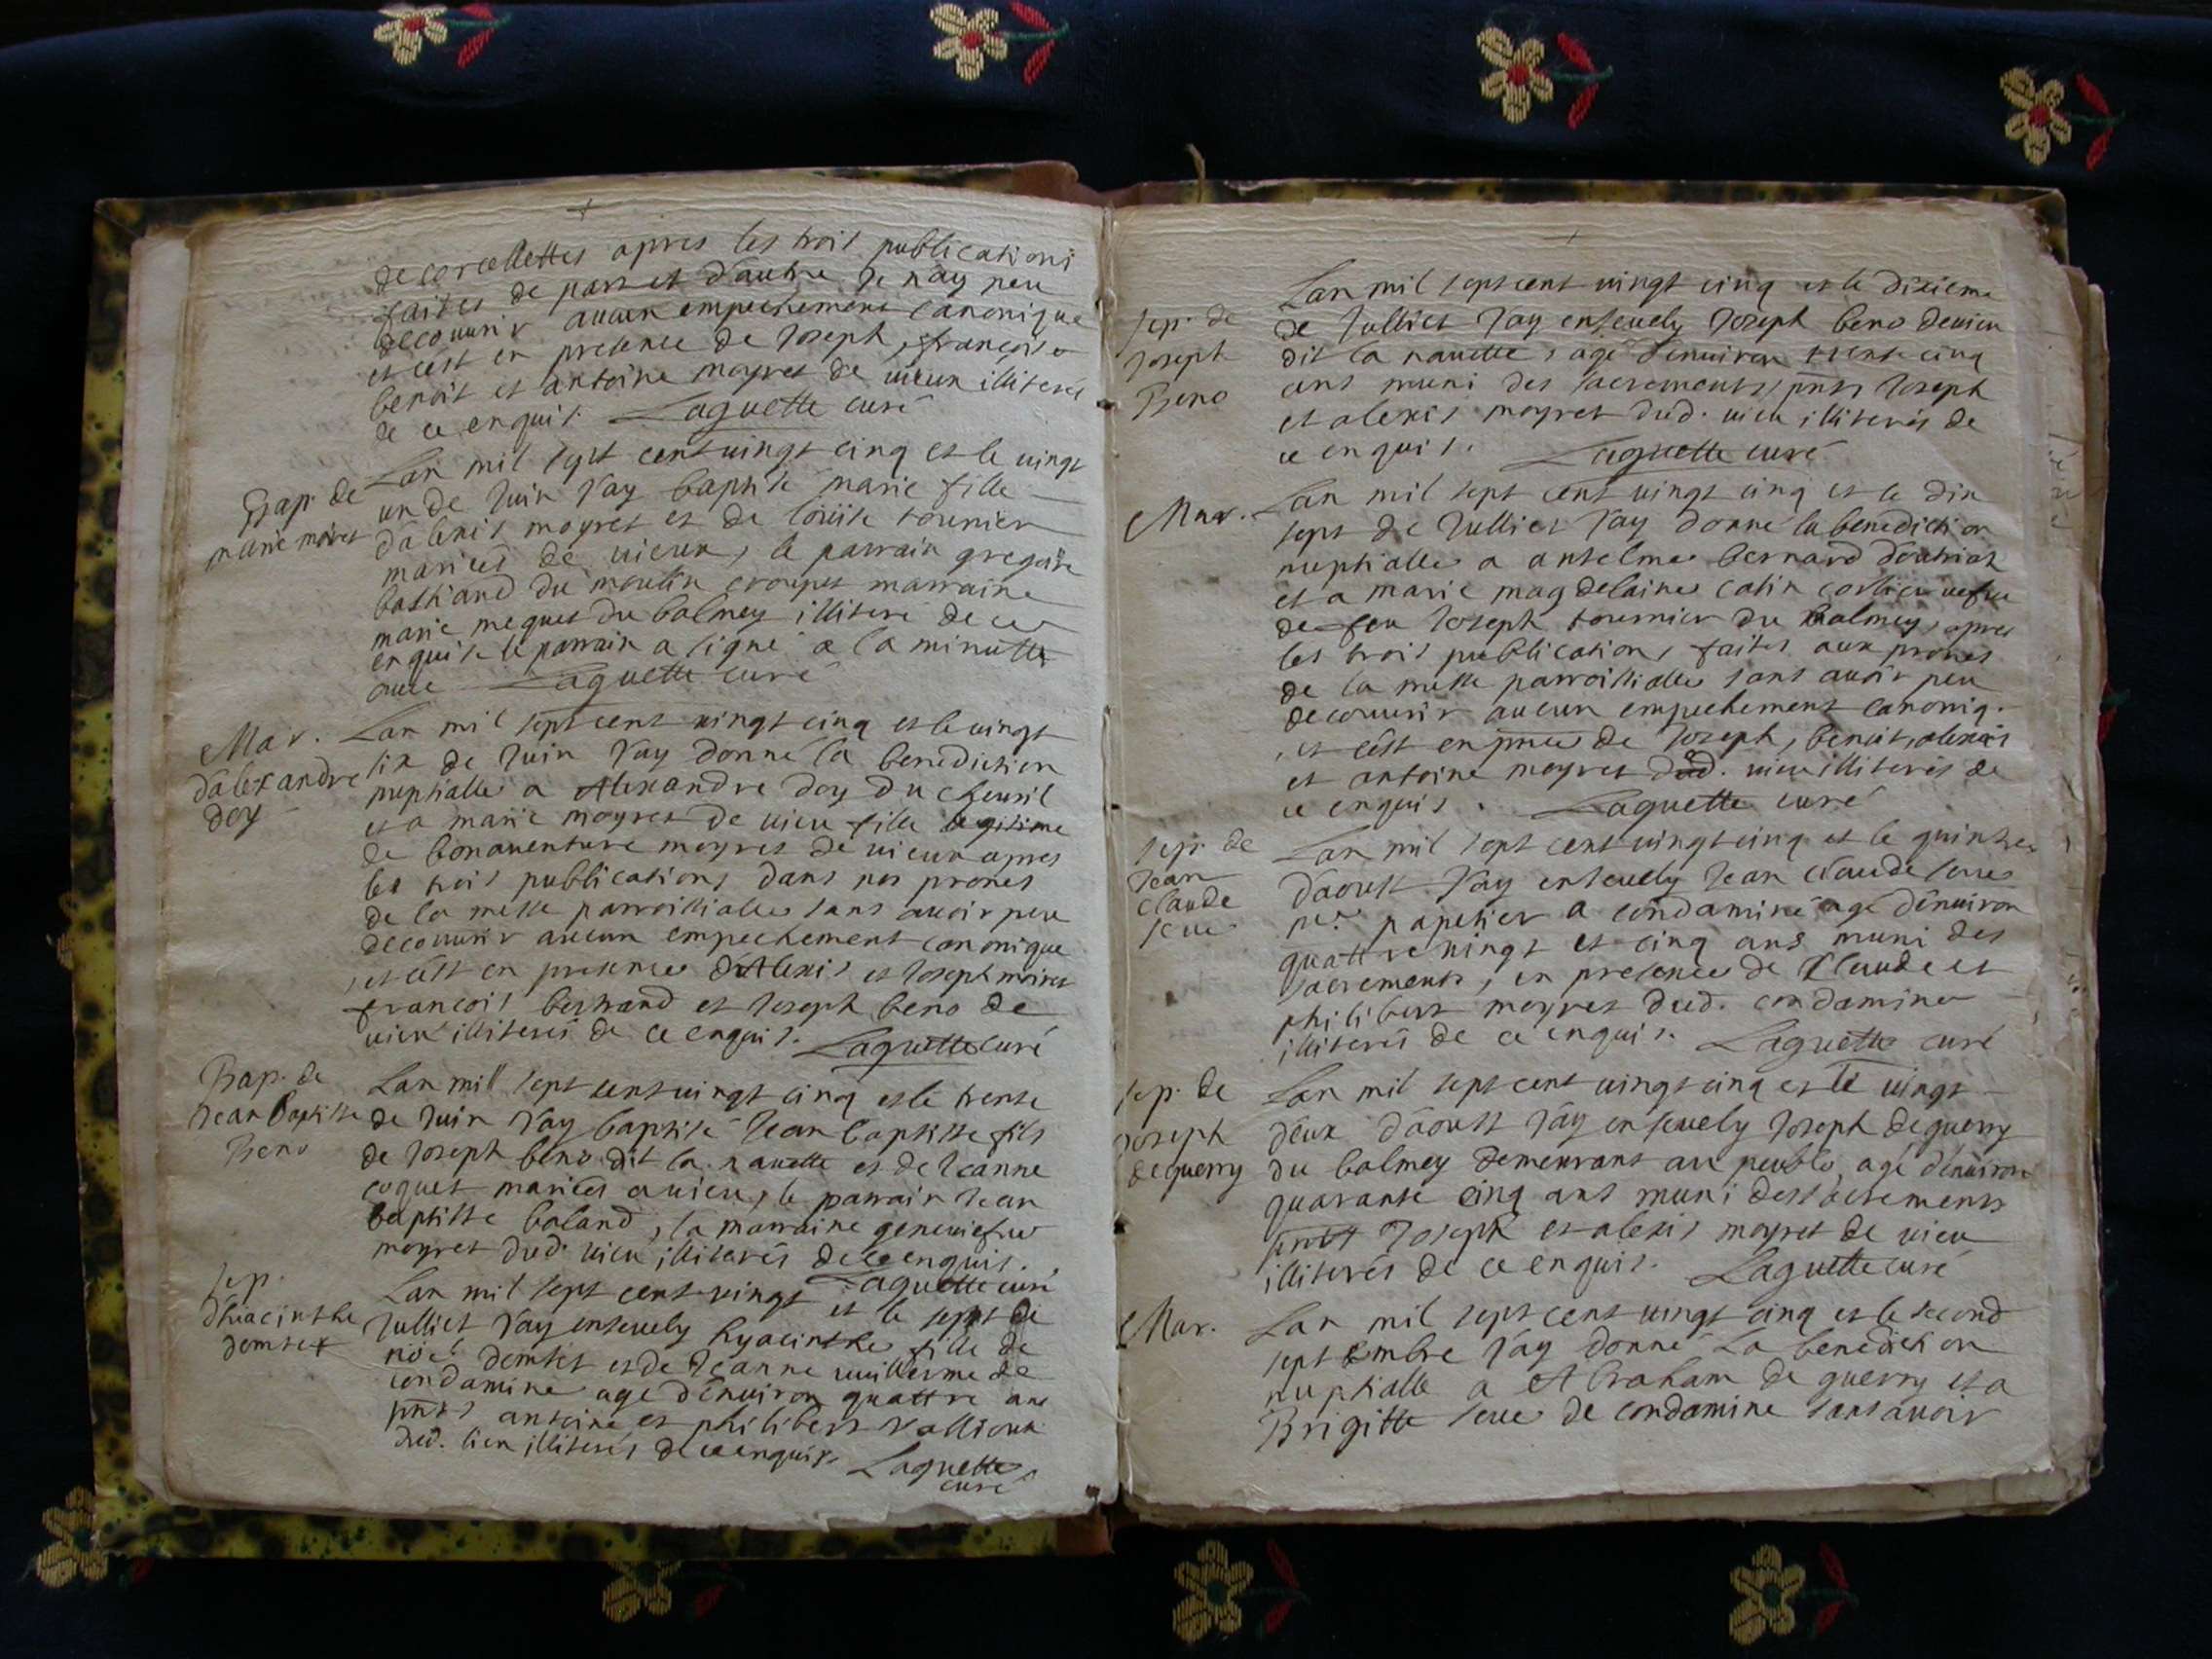 de corcellettes apres les trois publications
faites de part et d'autre Je n'ay peu
decouurir aucun empechement canonique
et cest en presence de Joseph, françois
benoit et antoine moyret de uieux illiterés
de ce enquis. Laguette curé
Bap. de
marie moiret
Lan mil sept cent uingt cinq et le uingt
un de Juin J'ay baptisé marie fille
d'alexis moyret et de loüise tournier
mariés de uieux, le parrain gregoire
bastiand du moulin croupet marraine
marie meques du balmey illiteré de ce
enquise le parrain a signé a la minutte
auec Laguette curé
Mar.
d'alexandre
doy
Lan mil sept cent uingt cinq et le uingt
six de Juin J'ay donné la benediction
nuptialle a Alexandre doy du cheuril
et a marie moyret de uieu fille legitime
de bonauenture moyret de uieux apres
les trois publications dans nos prones
de la messe parroissialle sans auoir peu
decouurir aucun empechement canonique
, et cest en presence d'Alexis et Joseph moiret
francois bertrand et Joseph beno de
uieu illiterés de ce enquis. Laguette curé
Bap. de
Jean Baptiste
Beno
Lan mill sept cent uingt cinq et le trente
de Juin J'ay baptisé Jean baptiste fils
de Joseph beno dit la nauette et de Jeanne
coquet mariés a uieu, le parrain Jean
baptiste baland, la marraine geneuiefue
moyret dud. uieu illiterés de ce enquis.
Laguette curé
sep.
d'hiacinthe
demtet
Lan mil sept cent uingt et le sept de
Julliet J'ay enseuely hyacinthe fille de
noel demtet et de Jeanne uuillerme de
condamine age d'enuiron quattre ans
pnts antoine et philibert
dud. lieu illiterés de ce enquis Laguette
curé
sep. de
Joseph
Beno
Lan mil sept cent uingt cinq et le dixieme
de Julliet J'ay enseuely Joseph beno de uieu
dit la nauette, agé d'enuiron trente cinq
ans muni des sacrements, pnts Joseph
et alexis moyret dud. uieu illiterés de
ce enquis. Laguette curé
Mar.
Lan mil sept cent uingt cinq et le dix
sept de Julliet J'ay donné la benediction
nuptialle a anselme bernard d'outriat
et a marie magdelaine catin uefue
de feu Joseph tournier du Balmey, apres
les trois publications faites aux prones
de la messe parroissialle sans auoir peu
decouurir aucun empechement canoniq.
, et cest en pnce de Joseph, benoit, alexis
et antoine moyret dud. uieu illiterés de
ce enquis. Laguette curé
sep. de
Jean
claude
seue
Lan mil sept cent uingt cinq et le quinze
d'aoust J'ay enseuely Jean claude seue
papetier a condamine agé d'enuiron
quattre uingt et cinq ans muni des
sacrements, en presence de Claude et
philibert moyret dud. condamine
illiterés de ce enquis. Laguette curé
sep. de
Joseph
deguerry
Lan mil sept cent uingt cinq et le uingt
deux d'aoust J'ay enseuely Joseph deguerry
du balmey demeurant au peublo, agé d'enuiron
quarante cinq ans muni des sacrements
pnts Joseph et alexis moyret de uieu
illiterés de ce enquis. Laguette curé
Mar.
Lan mil sept cent uingt cinq et le second
septembre J'ay donné La benediction
nuptialle a Abraham de guerry et a
Brigitte seue de condamine sans auoir